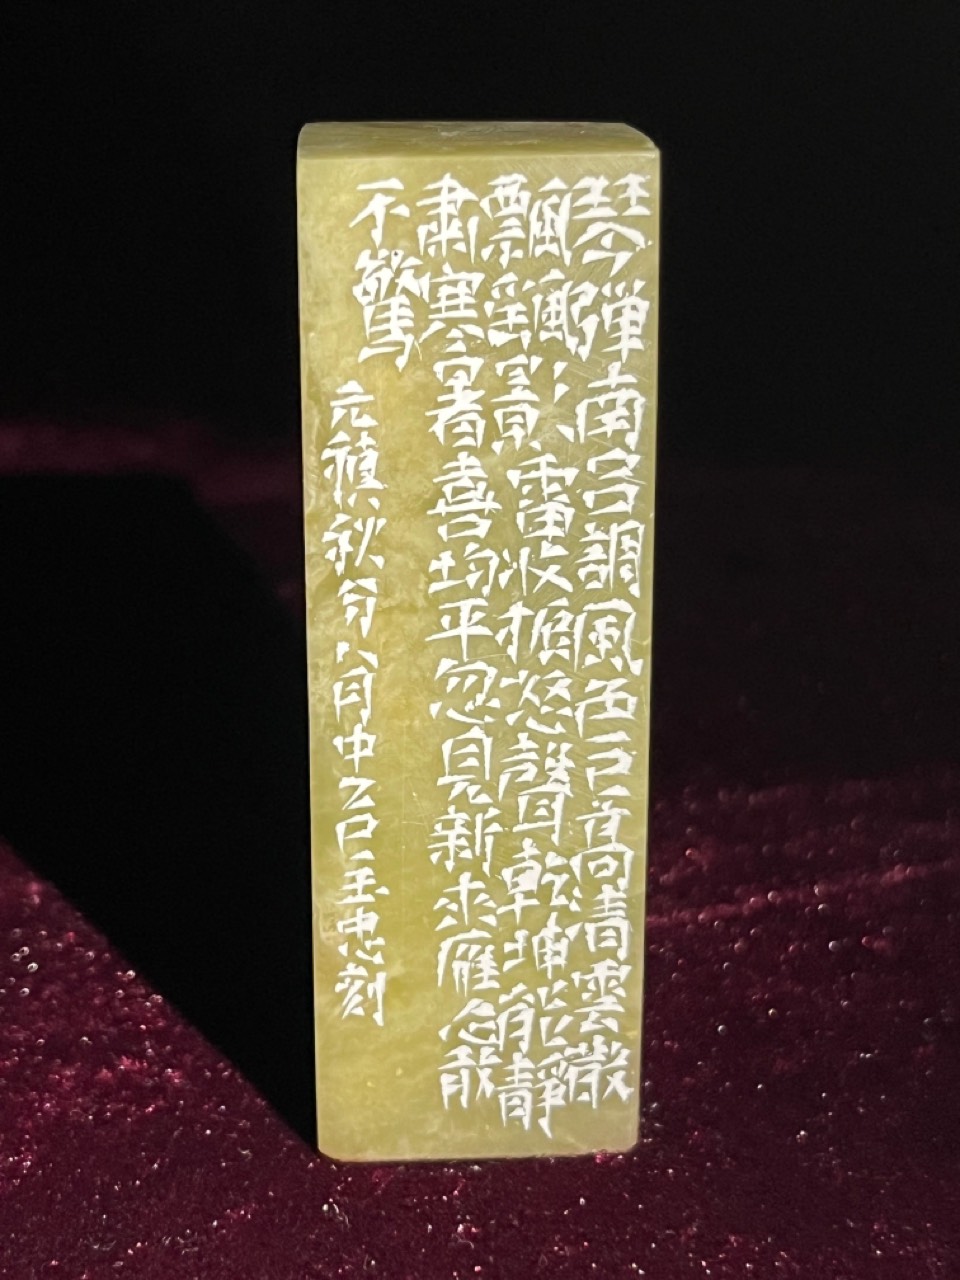 琴弾南呂調風色已高清雲散
飄飖影雷收振怒聲乾坤能靜
肅寒暑喜均平忽見新来雁人心敢
不驚
元稹秋分八月中乙巳玉忠刻